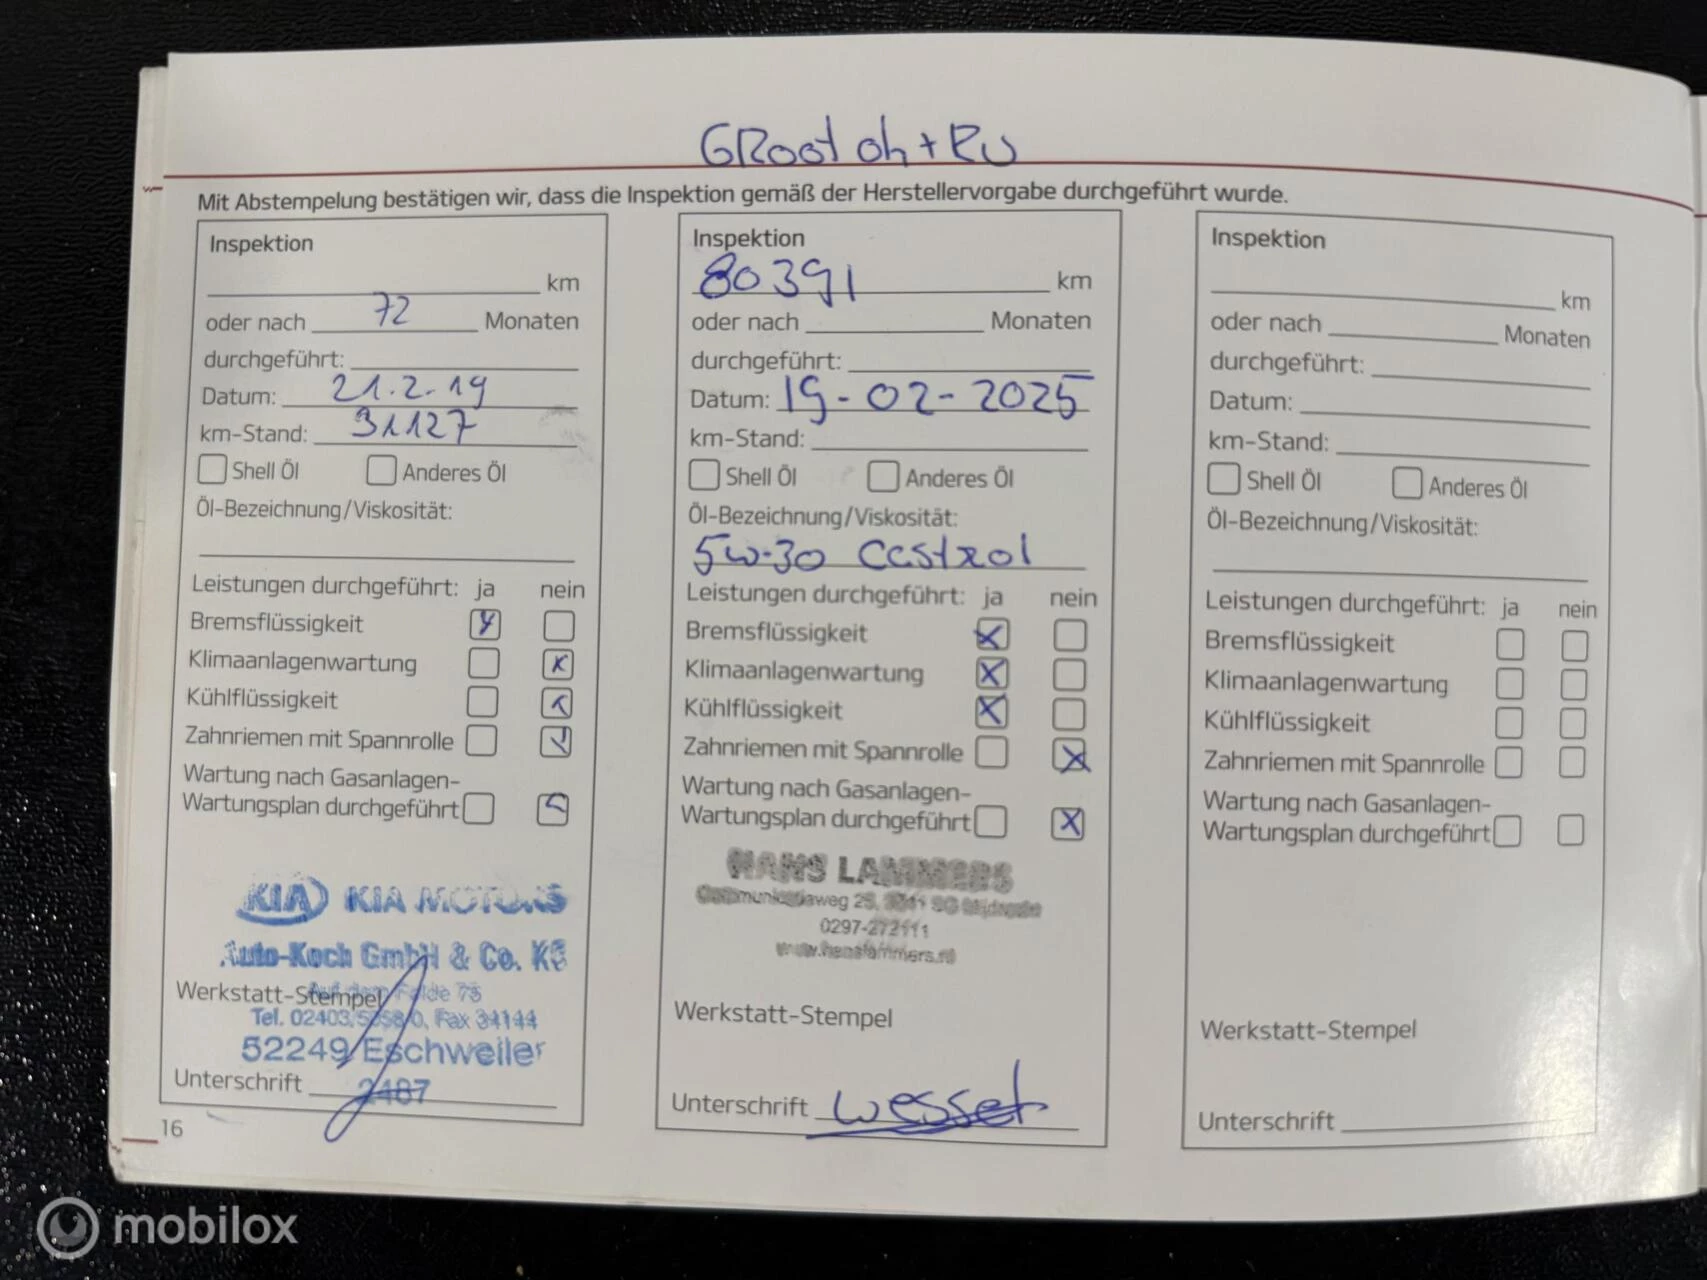 GRoot oh + RU
Mit Abstempelung bestätigen wir, dass die Inspektion gemäß der Herstellervorgabe durchgeführt wurde.
Inspektion
km
oder nach 72 Monaten
durchgeführt:
Datum: 21.2.19
km-Stand: 31127
Shell Öl Anderes Öl
Öl-Bezeichnung/Viskosität:
Leistungen durchgeführt: ja nein
Bremsflüssigkeit
Klimaanlagenwartung
Kühlflüssigkeit
Zahnriemen mit Spannrolle
Wartung nach Gasanlagen-
Wartungsplan durchgeführt
KIA KIA MOTORS
Auto-Koch GmbH & Co. KG
Werkstatt-Stempel Auf dem Felde 75
Tel. 02403/5058/0, Fax 34144
52249 Eschweiler
Unterschrift 2487
16
Inspektion
80391 km
oder nach Monaten
durchgeführt:
Datum: 19-02-2025
km-Stand:
Shell Öl Anderes Öl
Öl-Bezeichnung/Viskosität:
5w-30 Castrol
Leistungen durchgeführt: ja nein
Bremsflüssigkeit
Klimaanlagenwartung
Kühlflüssigkeit
Zahnriemen mit Spannrolle
Wartung nach Gasanlagen-
Wartungsplan durchgeführt
HANS LAMMERS
Communicatieweg
0297-272111
www.hanslammers.nl
Werkstatt-Stempel
Unterschrift wessel
Inspektion
km
oder nach Monaten
durchgeführt:
Datum:
km-Stand:
Shell Öl Anderes Öl
Öl-Bezeichnung/Viskosität:
Leistungen durchgeführt: ja nein
Bremsflüssigkeit
Klimaanlagenwartung
Kühlflüssigkeit
Zahnriemen mit Spannrolle
Wartung nach Gasanlagen-
Wartungsplan durchgeführt
Werkstatt-Stempel
Unterschrift
mobilox